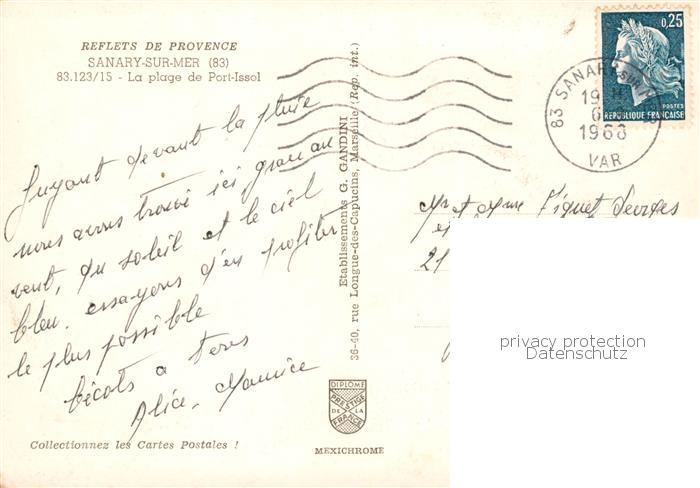 REFLETS DE PROVENCE
SANARY-SUR-MER (83)
83.123/15 - La plage de Port-Issol
Fuyant devant la pluie
nous avons trouvé ici, grand
vent, du soleil et le ciel
bleu. essayons d'en profiter
le plus possible
bécots a tous
Alice. Maurice
Collectionnez les Cartes Postales !
Etablissements G. GANDINI
36-40, rue Longue-des-Capucins, Marseille (Rep. int.)
DIPLOME
PRESTIGE
DE LA
FRANCE
MEXICHROME
0,25
POSTES
REPUBLIQUE FRANÇAISE
83 SANARY
19 H
6
1968
VAR
Mr et Mme Piquet Georges
et
21
privacy protection
Datenschutz